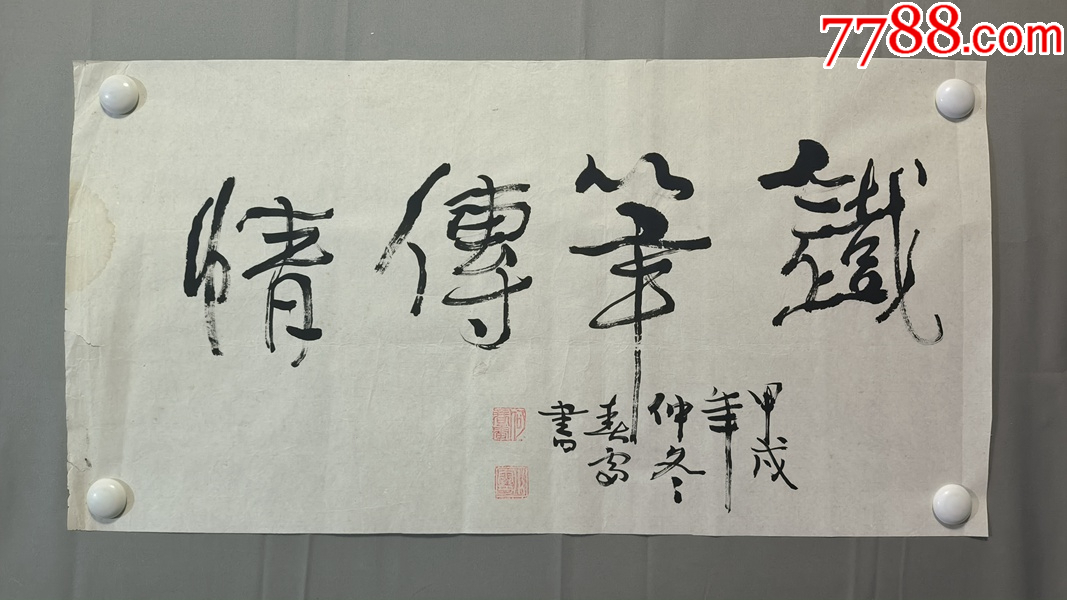 7788.com
鐵筆傳情
甲戌
年
仲冬
春雷
書